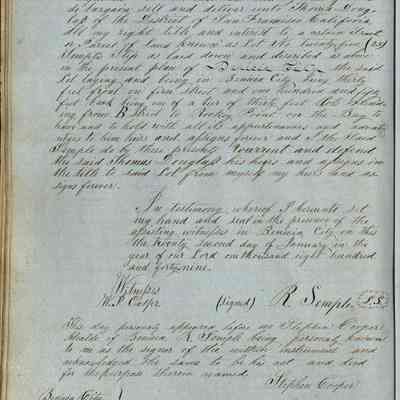 bargain sell and deliver unto Thomas Doug-
lass of the District of San Francisco California
all my right title and interest to a certain Tract
or Parcel of Land known as Lot No Twenty five (25)
Semples Slip as laid down and described as above
in the present plan of Benicia City, the said
Lot laying and being in Benicia City, being thirty
feet front on first street and one hundred and fifty
feet back being on of a tier of thirty feet lots extend-
ing from B Street to Rocky Point on the Bay to
have and to hold with all its appertainances and
to him heirs and assigns forever and I the said
Semple do by these presents Warrent and defend
the said Thomas Douglass his heirs and assigns in
the title to said Lot from myself my heirs and as-
signs forever.
In testimony whereof I hereunto set
my hand and seal in the presence of the
assisting witness in Benicia City on this
the twenty second day of January in the
year of our Lord one thousand eight hundred
and forty nine.
Witness
W. P. Cooper (Signed) R Semple L.S.
This day personly appeared before me Stephen Cooper
Alcalde of Benicia R. Semple being personly known
to me as the signer of the within instrument and
acknowledged the same to be his act and deed
for the purpose therein named
Stephen Cooper
Benicia City }